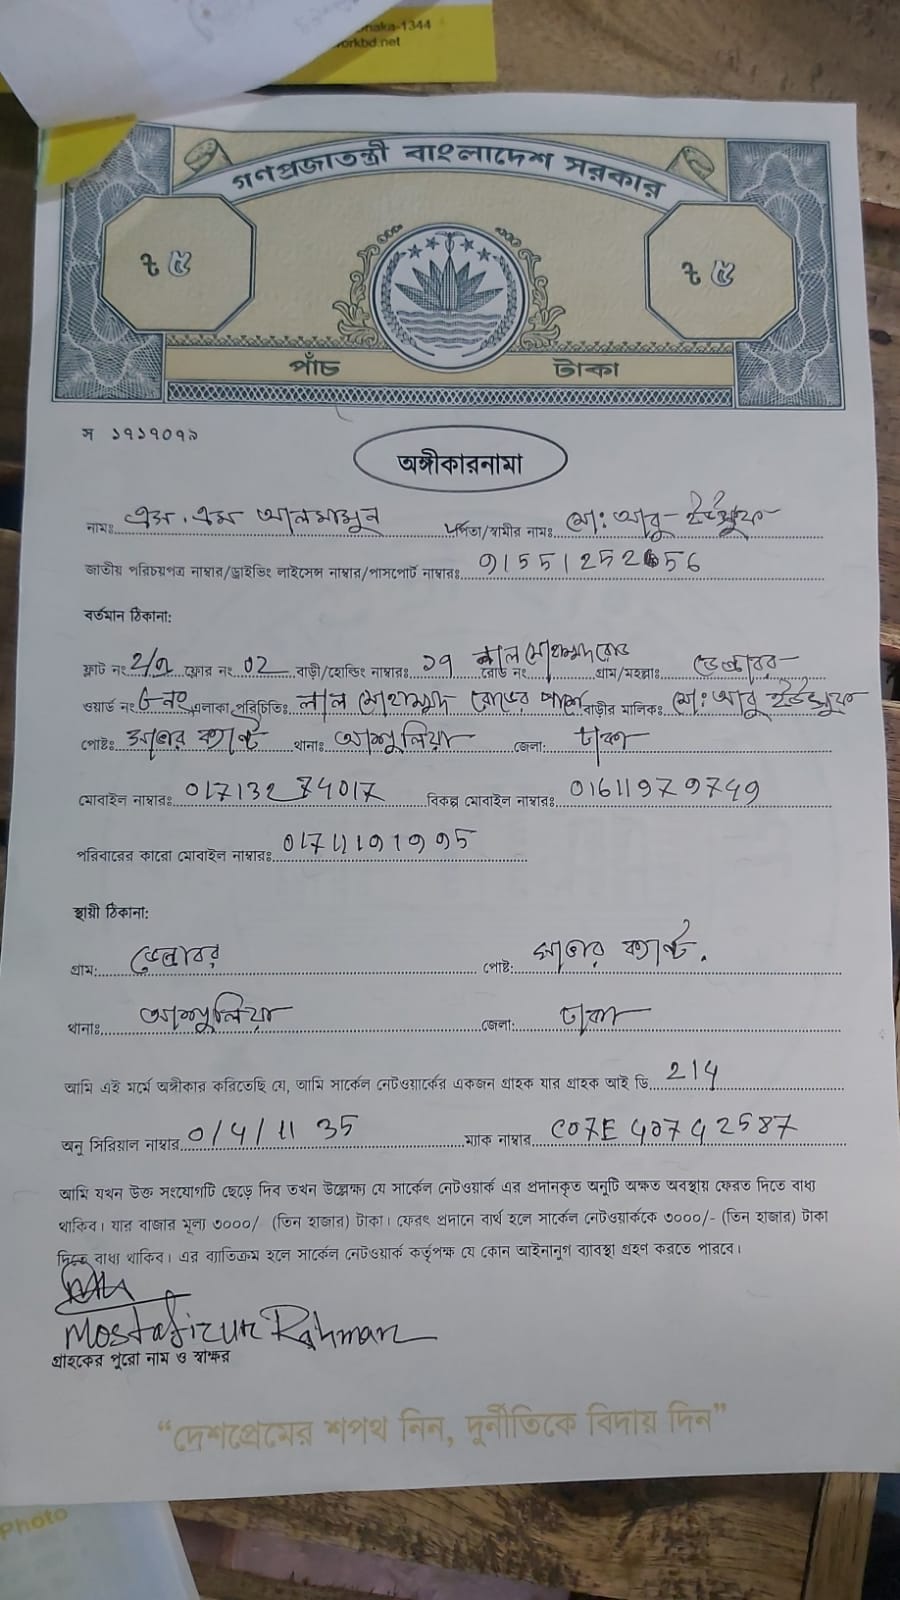 haka-1344
orkbd.net
গণপ্রজাতন্ত্রী বাংলাদেশ সরকার
৳ ৫ ৳ ৫
পাঁচ টাকা
স ১৭১৭০৭৯
অঙ্গীকারনামা
নামঃ এস.এম আলমামুন পিতা/স্বামীর নামঃ মো: আবু ইউসুফ
জাতীয় পরিচয়পত্র নাম্বার/ড্রাইভিং লাইসেন্স নাম্বার/পাসপোর্ট নাম্বারঃ
বর্তমান ঠিকানা:
ফ্লাট নং ফ্লোর নং 02 বাড়ী/হোল্ডিং নাম্বারঃ ১৭ রোড নং লাল মোহাম্মদ রোড গ্রাম/মহল্লাঃ ডেন্ডাবর
ওয়ার্ড নং ৬ নং এলাকা পরিচিতিঃ লাল মোহাম্মদ রোডের পাশে বাড়ীর মালিক: মো: আবু ইউসুফ
পোষ্টঃ সাভার ক্যান্ট থানাঃ আশুলিয়া জেলা: ঢাকা
মোবাইল নাম্বারঃ 01713274017 বিকল্প মোবাইল নাম্বারঃ 01611979749
পরিবারের কারো মোবাইল নাম্বারঃ 01711191995
স্থায়ী ঠিকানা:
গ্রাম: ডেন্ডাবর পোষ্ট: সাভার ক্যান্ট.
থানাঃ আশুলিয়া জেলা: ঢাকা
আমি এই মর্মে অঙ্গীকার করিতেছি যে, আমি সার্কেল নেটওয়ার্কের একজন গ্রাহক যার গ্রাহক আই ডি 214
অনু সিরিয়াল নাম্বার 0/4/11 35 ম্যাক নাম্বার C07E 4074 2587
আমি যখন উক্ত সংযোগটি ছেড়ে দিব তখন উল্লেক্ষ্য যে সার্কেল নেটওয়ার্ক এর প্রদানকৃত অনুটি অক্ষত অবস্থায় ফেরত দিতে বাধ্য
থাকিব। যার বাজার মূল্য ৩০০০/- (তিন হাজার) টাকা। ফেরৎ প্রদানে ব্যর্থ হলে সার্কেল নেটওয়ার্ককে ৩০০০/- (তিন হাজার) টাকা
দিতে বাধ্য থাকিব। এর ব্যতিক্রম হলে সার্কেল নেটওয়ার্ক কর্তৃপক্ষ যে কোন আইনানুগ ব্যবস্থা গ্রহণ করতে পারবে।
Mostafizur Rahman
গ্রাহকের পুরো নাম ও স্বাক্ষর
“দেশপ্রেমের শপথ নিন, দুর্নীতিকে বিদায় দিন”
Photo